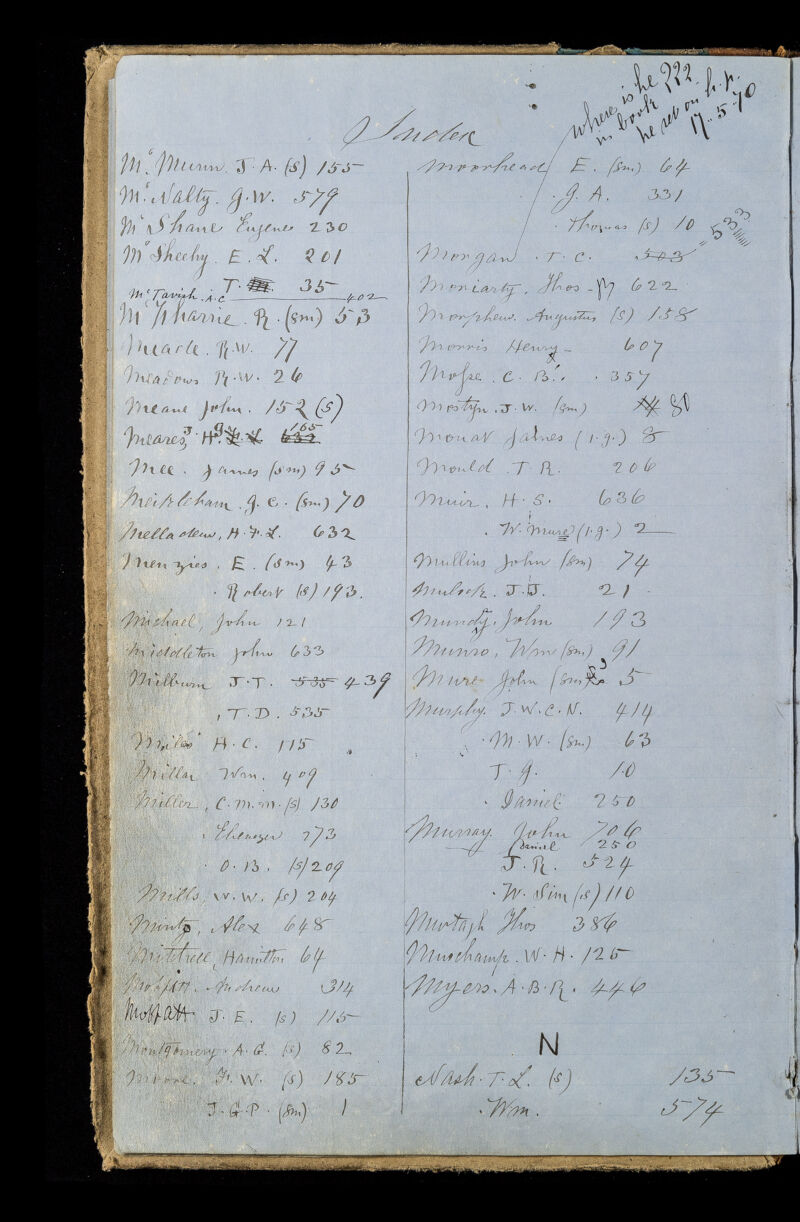 Index
where is he ???
in book
he ret on h.p.
17-5-70
McMunn. J. A. (s) 155
McNalty. G. W. 579
McShane Eugene 230
McSheehy. E. L. 201
T. 35
McTavish. A. C 402
R. (sm) 53
Meade. R. W. 77
Meadows R. W. 26
Meane John. 152 (s)
Meares, J. H. 632 165
Mee. James (sm) 95
Meikleham. J. C. (sm) 70
Melladew, H. F. L. 632
Menzies. E. (sm) 43
Robert (s) 193.
Michael, John 121
Middleton John 633
Milburn J. T. 535 439
, T. D. 535
Miles H. C. 115
Millar Wm. 409
Miller, C. M. M. (s) 130
Ebenezer 273
O. B. (s) 209
Mills, W. W. (s) 204
Mintz, Alex 648
Mitchell, Hamilton 64
Moffitt. Andrew 314
Moffatt J. E. (s) 115
Montgomery. A. G. (s) 82
Moore. F. W. (s) 185
J. G. P. (sm) 1
Moorhead E. (sm) 64
J. A. 331
Thomas (s) 10
Morgan. T. C. 503 = 533
Moriarty. Thos. 622
Morphew. Augustus (s) 158
Morris Henry - 607
Mosse. C. B. 357
Mostyn. J. W. (sm) 80
Mouat James (I.G.) 8
Mould. T. R. 206
Muir. H. S. 636
W. Mure (I.G.) 2
Mullins John (sm) 74
Mulock. J. J. 21
Mundy. John 193
Munro, Wm (sm) 91
Mure John (sm) 5
Murphy. J. W. C. N. 414
M. W. (sm) 63
T. G. 10
Daniel 250
Murray. John 706
Daniel 250
J. R. 524
W. Sim (s) 110
Murtagh Thos 386
Muschamp. W. H. 125
Myers. A. B. R. 446
N
Nash. T. L. (s) 135
Wm. 574